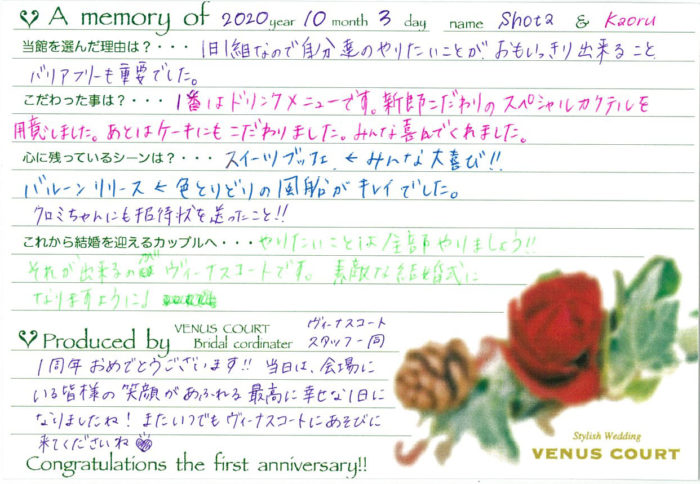 A memory of 2020 year 10 month 3 day name Shota & Kaoru
当館を選んだ理由は?・・・1日1組なので自分達のやりたいことがおもいっきり出来ること
バリアフリーも重要でした。
こだわった事は?・・・1番はドリンクメニューです。新郎こだわりのスペシャルカクテルを
用意しました。あとはケーキにもこだわりました。みんな喜んでくれました。
心に残っているシーンは?・・・スイーツブッフェ ← みんな大喜び!!
バルーンリリース ← 色とりどりの風船がキレイでした。
クロミちゃんにも招待状を送ったこと!!
これから結婚を迎えるカップルへ・・・やりたいことは全部やりましょう!!
それが出来るのがヴィーナスコートです。素敵な結婚式に
なりますように♩
Produced by VENUS COURT Bridal cordinater ヴィーナスコート スタッフ一同
1周年おめでとうございます!! 当日は、会場に
いる皆様の笑顔があふれる最高に幸せな1日に
なりましたね!またいつでもヴィーナスコートにあそびに
来てくださいね
Congratulations the first anniversary!!
Stylish Wedding
VENUS COURT